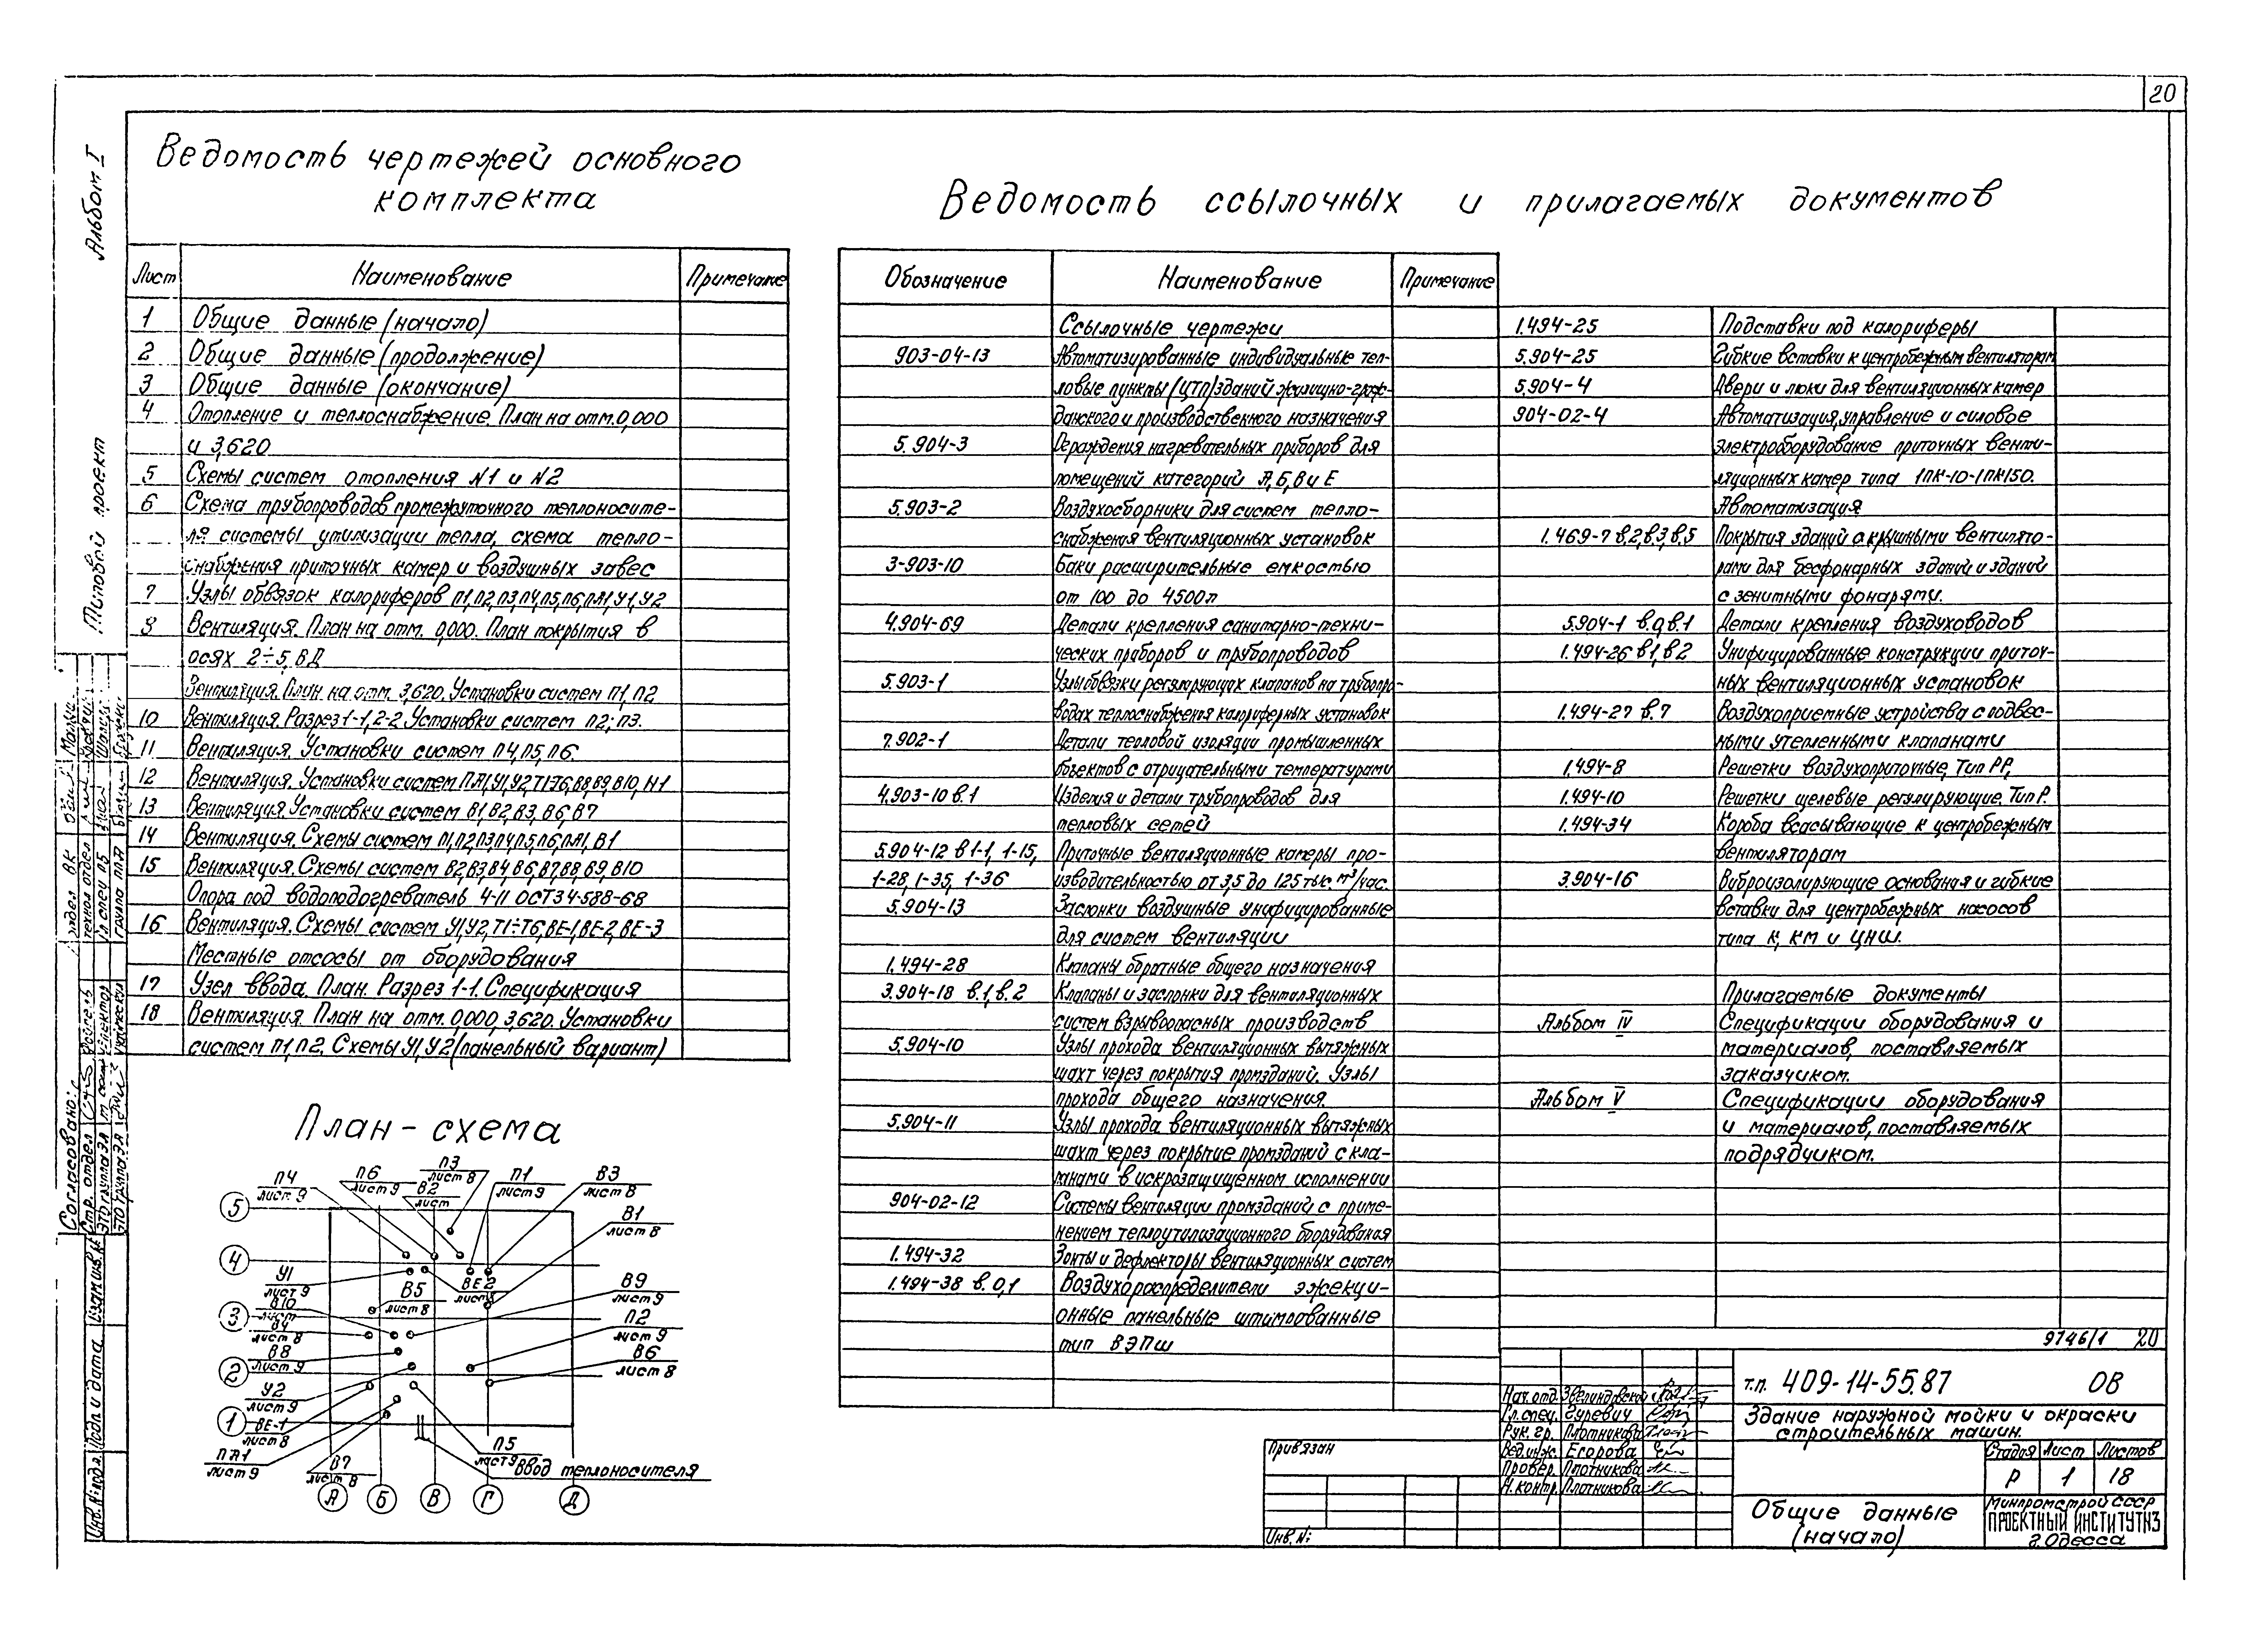 20
Альбом I
Типовой проект
Ведомость чертежей основного
комплекта
Лист Наименование Примечание
1 Общие данные (начало)
2 Общие данные (продолжение)
3 Общие данные (окончание)
4 Отопление и теплоснабжение. План на отм. 0,000
и 3,620
5 Схемы систем отопления N1 и N2
6 Схема трубопроводов промежуточного теплоносите-
ля системы утилизации тепла, схема тепло-
снабжения приточных камер и воздушных завес
7 Узлы обвязок калориферов П1,П2,П3,П4,П5,П6,ПА1,У1,У2
8 Вентиляция. План на отм. 0,000. План покрытия в
осях 2÷5, В Д
Вентиляция. План. на отм. 3,620. Установки систем П1, П2
10 Вентиляция. Разрез 1-1, 2-2. Установки систем П2; П3.
11 Вентиляция. Установки систем П4, П5, П6.
12 Вентиляция. Установки систем ПА1,У1,У2,Т1÷Т6,В8,В9,В10, Н1
13 Вентиляция Установки систем В1, В2, В3, В6, В7
14 Вентиляция. Схемы систем П1,П2,П3,П4,П5,П6,ПА1, В1
15 Вентиляция. Схемы систем В2,В3,В4,В6,В7,В8,В9,В10
Опора под водоподогреватель 4-11 ОСТ34-588-68
16 Вентиляция. Схемы систем У1,У2,Т1÷Т6,ВЕ-1,ВЕ-2,ВЕ-3
Местные отсосы от оборудования
17 Узел ввода. План. Разрез 1-1. Спецификация
18 Вентиляция. План на отм. 0,000, 3,620. Установки
систем П1, П2. Схемы У1, У2 (панельный вариант)
План-схема
П4
лист 9
П6
лист 9
П3
лист 8
В2
лист
П1
лист 9
В3
лист 8
В1
лист 8
5
4
3
2
1
У1
лист 9
В10
лист
В4
лист 8
В8
лист 9
У2
лист 9
ВЕ-1
лист 8
ПА1
лист 9
В7
лист 8
В5
лист 8
ВЕ2
В9
лист 9
П2
лист 9
В6
лист 8
П5
лист 9
Ввод теплоносителя
А Б В Г Д
Ведомость ссылочных и прилагаемых документов
Обозначение Наименование Примечание
Ссылочные чертежи
903-04-13 Автоматизированные индивидуальные теп-
ловые пункты (ЦТП) зданий жилищно-граж-
данского и производственного назначения
5.904-3 Ограждения нагревательных приборов для
помещений категорий А, Б, В и Е
5.903-2 Воздухосборники для систем тепло-
снабжения вентиляционных установок
3-903-10 Баки расширительные емкостью
от 100 до 4500л
4.904-69 Детали крепления санитарно-техни-
ческих приборов и трубопроводов
5.903-1 Узлы обвязки регулирующих клапанов на трубопро-
водах теплоснабжения калориферных установок
7.902-1 Детали тепловой изоляции промышленных
объектов с отрицательными температурами
4.903-10 в.1 Изделия и детали трубопроводов для
тепловых сетей
5.904-12 в 1-1, 1-15, Приточные вентиляционные камеры про-
1-28, 1-35, 1-36 изводительностью от 3,5 до 125 тыс. м³/час.
5.904-13 Заслонки воздушные унифицированные
для систем вентиляции
1.494-28 Клапаны обратные общего назначения
3.904-18 в.1, в.2 Клапаны и заслонки для вентиляционных
систем взрывоопасных производств
5.904-10 Узлы прохода вентиляционных вытяжных
шахт через покрытия промзданий. Узлы
прохода общего назначения.
5.904-11 Узлы прохода вентиляционных вытяжных
шахт через покрытие промзданий с кла-
панами в искрозащищенном исполнении
904-02-12 Системы вентиляции промзданий с приме-
нением теплоутилизационного оборудования
1.494-32 Зонты и дефлекторы вентиляционных систем
1.494-38 в. 0,1 Воздухораспределители эжекци-
онные панельные штампованные
тип ВЭПш
1.494-25 Подставки под калориферы
5.904-25 Гибкие вставки к центробежным вентиляторам
5.904-4 Двери и люки для вентиляционных камер
904-02-4 Автоматизация, управление и силовое
электрооборудование приточных венти-
ляционных камер типа 1ПК-10-1ПК150.
Автоматизация
1.469-7 в.2, в.3, в.5 Покрытия зданий с крышными вентилято-
рами для бесфонарных зданий и зданий
с зенитными фонарями.
5.904-1 в.0, в.1 Детали крепления воздуховодов
1.494-26 в1, в2 Унифицированные конструкции приточ-
ных вентиляционных установок
1.494-27 в.7 Воздухоприемные устройства с подвес-
ными утепленными клапанами
1.494-8 Решетки воздухоприточные, Тип РР,
1.494-10 Решетки щелевые регулирующие. Тип Р.
1.494-34 Короба всасывающие к центробежным
вентиляторам
3.904-16 Виброизолирующие основания и гибкие
вставки для центробежных насосов
типа К, КМ и ЦНШ.
Прилагаемые документы
Альбом IV Спецификации оборудования и
материалов, поставляемых
заказчиком.
Альбом V Спецификации оборудования
и материалов, поставляемых
подрядчиком.
9746/1 20
т.п. 409-14-55.87 ОВ
Здание наружной мойки и окраски
строительных машин.
Нач. отд. Звениговский
Гл. спец. Гуревич
Рук. гр. Плотникова
Вед. инж. Егорова
Провер. Плотникова
Н. контр. Плотникова
Стадия Лист Листов
Р 1 18
Общие данные
(начало)
Минпромстрой СССР
ПРОЕКТНЫЙ ИНСТИТУТ N3
г. Одесса
Привязан
Инв. N:
Согласовано:
Стр. отдел
ЭТО группа ЭЛ
ЭТО группа ЭЛ
отдел ВК
технол отдел
гл спец ПБ
группа ППР
Взам. инв. N
Подп и дата
Инв. N подл.